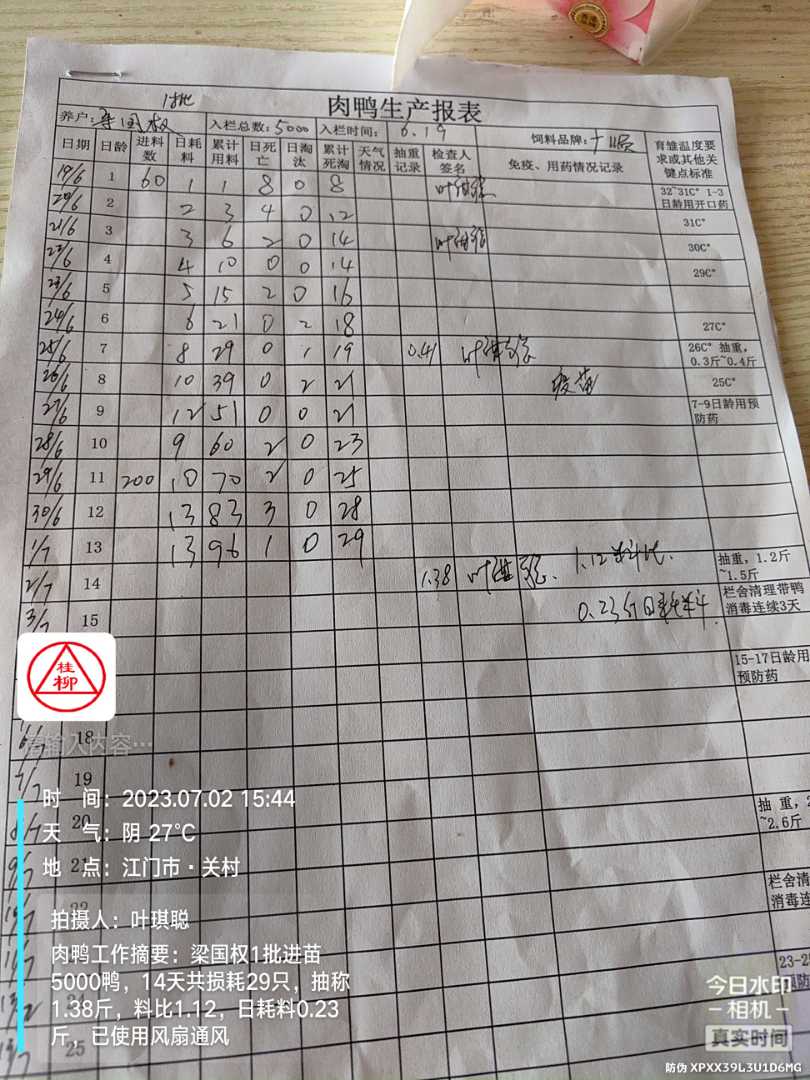 1批
肉鸭生产报表
养户: 梁国权 入栏总数: 5000 入栏时间: 6.19 饲料品牌:
育雏温度要求或其他关键点标准
日期 日龄 进料数 日耗料 累计用料 日死亡 日淘汰 累计死淘 天气情况 抽重记录 检查人签名 免疫、用药情况记录
19/6 1 60 1 1 8 0 8 叶琪聪 32~31C° 1-3日龄用开口药
20/6 2 2 3 4 0 12 31C°
21/6 3 3 6 2 0 14 叶琪聪 30C°
22/6 4 4 10 0 0 14 29C°
23/6 5 5 15 2 0 16
24/6 6 6 21 0 2 18 27C°
25/6 7 8 29 0 1 19 0.41 叶琪聪 26C° 抽重,0.3斤~0.4斤
26/6 8 10 39 0 2 21 疫苗 25C°
27/6 9 12 51 0 0 21 7-9日龄用预防药
28/6 10 9 60 2 0 23
29/6 11 200 10 70 2 0 25
30/6 12 13 83 3 0 28
1/7 13 13 96 1 0 29
2/7 14 1.38 叶琪聪. 1.12料比. 抽重, 1.2斤~1.5斤
3/7 15 0.23斤日耗料. 栏舍清理带鸭消毒连续3天
桂柳
15-17日龄用预防药
6/7 18
请输入内容…
7/7 19
时 间: 2023.07.02 15:44
8/7 20 抽 重, 2
~2.6斤
天 气: 阴 27°C
9/7 21
地 点: 江门市·关村
栏舍清
消毒连
22
拍摄人: 叶琪聪
肉鸭工作摘要: 梁国权1批进苗
5000鸭, 14天共损耗29只, 抽称
1.38斤, 料比1.12, 日耗料0.23
斤, 已使用风扇通风
23-25
预防
24
25
今日水印
相机
真实时间
防伪 XPXX39L3U1D6MG